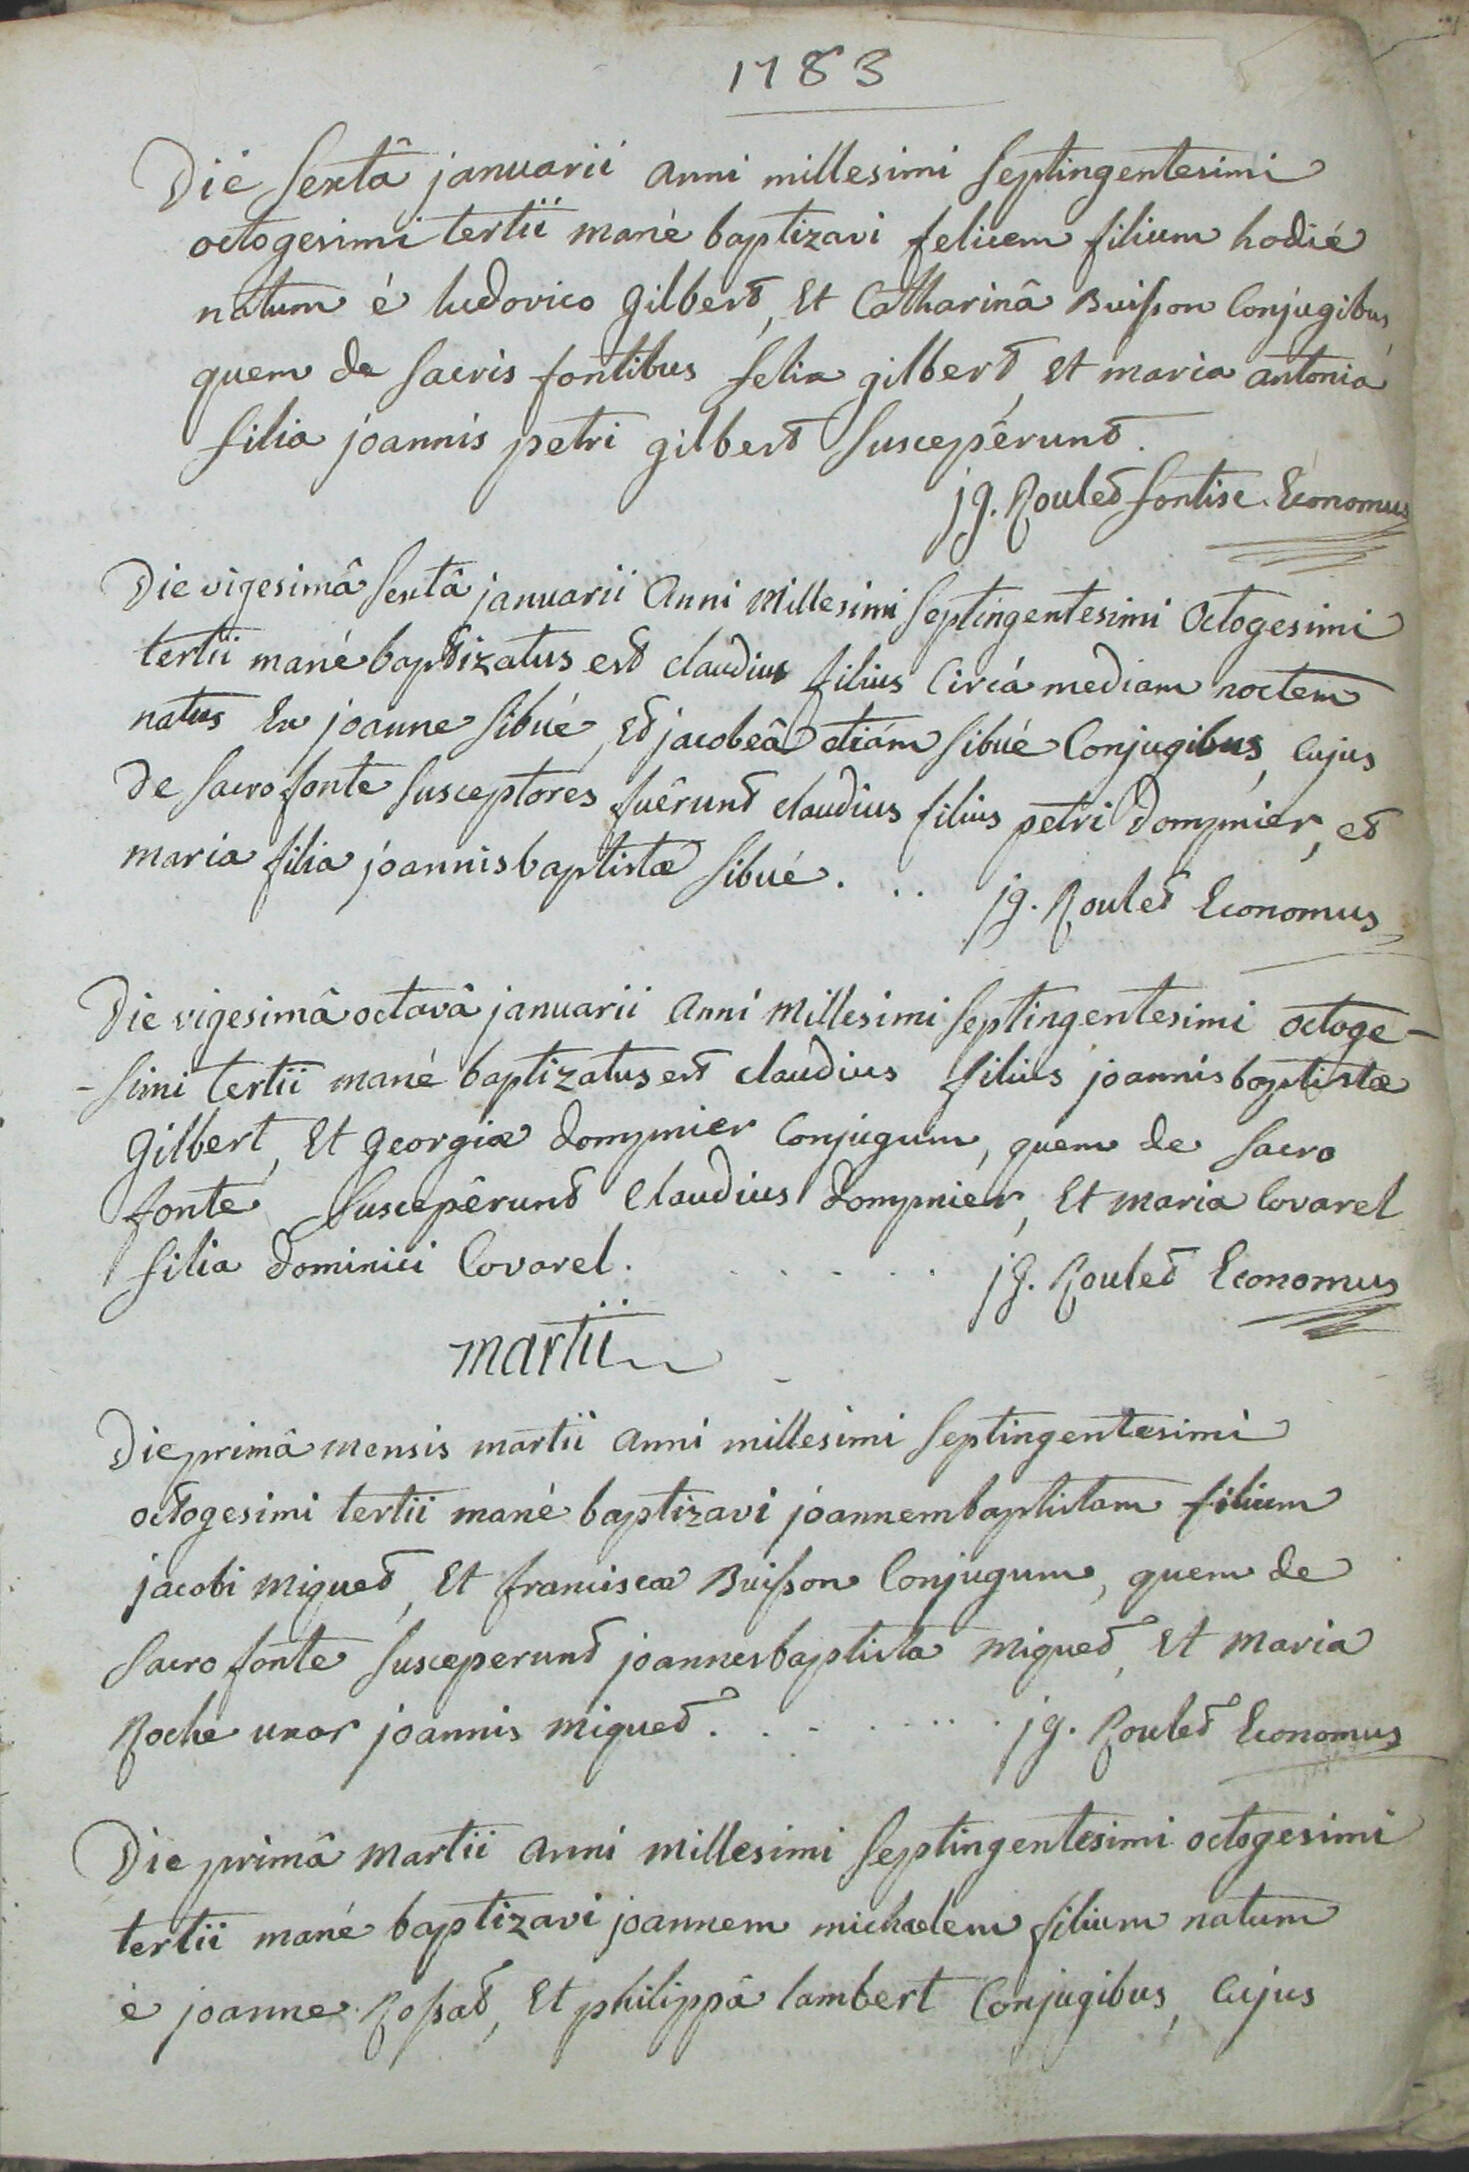 1783
Die sextâ januarii anni millesimi septingentesimi
octogesimi tertii manè baptizavi felicem filium hodiè
natum è ludovico gilbert, Et Catharinâ Buisson Conjugibus,
quem de sacris fontibus felix gilbert, Et maria antonia
filia joannis petri gilbert suscepêrunt.
jg. Roulet Economus
Die vigesimâ sextâ januarii Anni Millesimi septingentesimi Octogesimi
tertii manè baptizatus est claudius filius Circá mediam noctem
natus Ex joanne sibué, Et jacobeâ etiám sibué Conjugibus, Cujus
de sacro fonte susceptores fuêrunt claudius filius petri dompnier, et
maria filia joannis baptistæ sibué. . . jg. Roulet Economus
Die vigesimâ octavâ januarii Anni Millesimi septingentesimi octoge-
-simi tertii manè baptizatus est claudius filius joannis baptistæ
Gilbert, Et georgiæ dompnier Conjugum, quem de sacro
fonte suscepêrunt claudius dompnier, Et maria Covarel
filia dominici Covarel. . . . . . jg. Roulet Economus
martii
Die primâ mensis martii anni millesimi septingentesimi
octogesimi tertii manè baptizavi joannem baptistam filium
jacobi miquet, Et franciscæ Buisson Conjugum, quem de
sacro fonte susceperunt joannes baptista miquet, Et maria
Roche uxor joannis miquet. . . . . . . . jg. Roulet Economus
Die primâ martii anni millesimi septingentesimi octogesimi
tertii manè baptizavi joannem michaelem filium natum
è joanne Rossat, Et philippâ lambert Conjugibus, Cujus